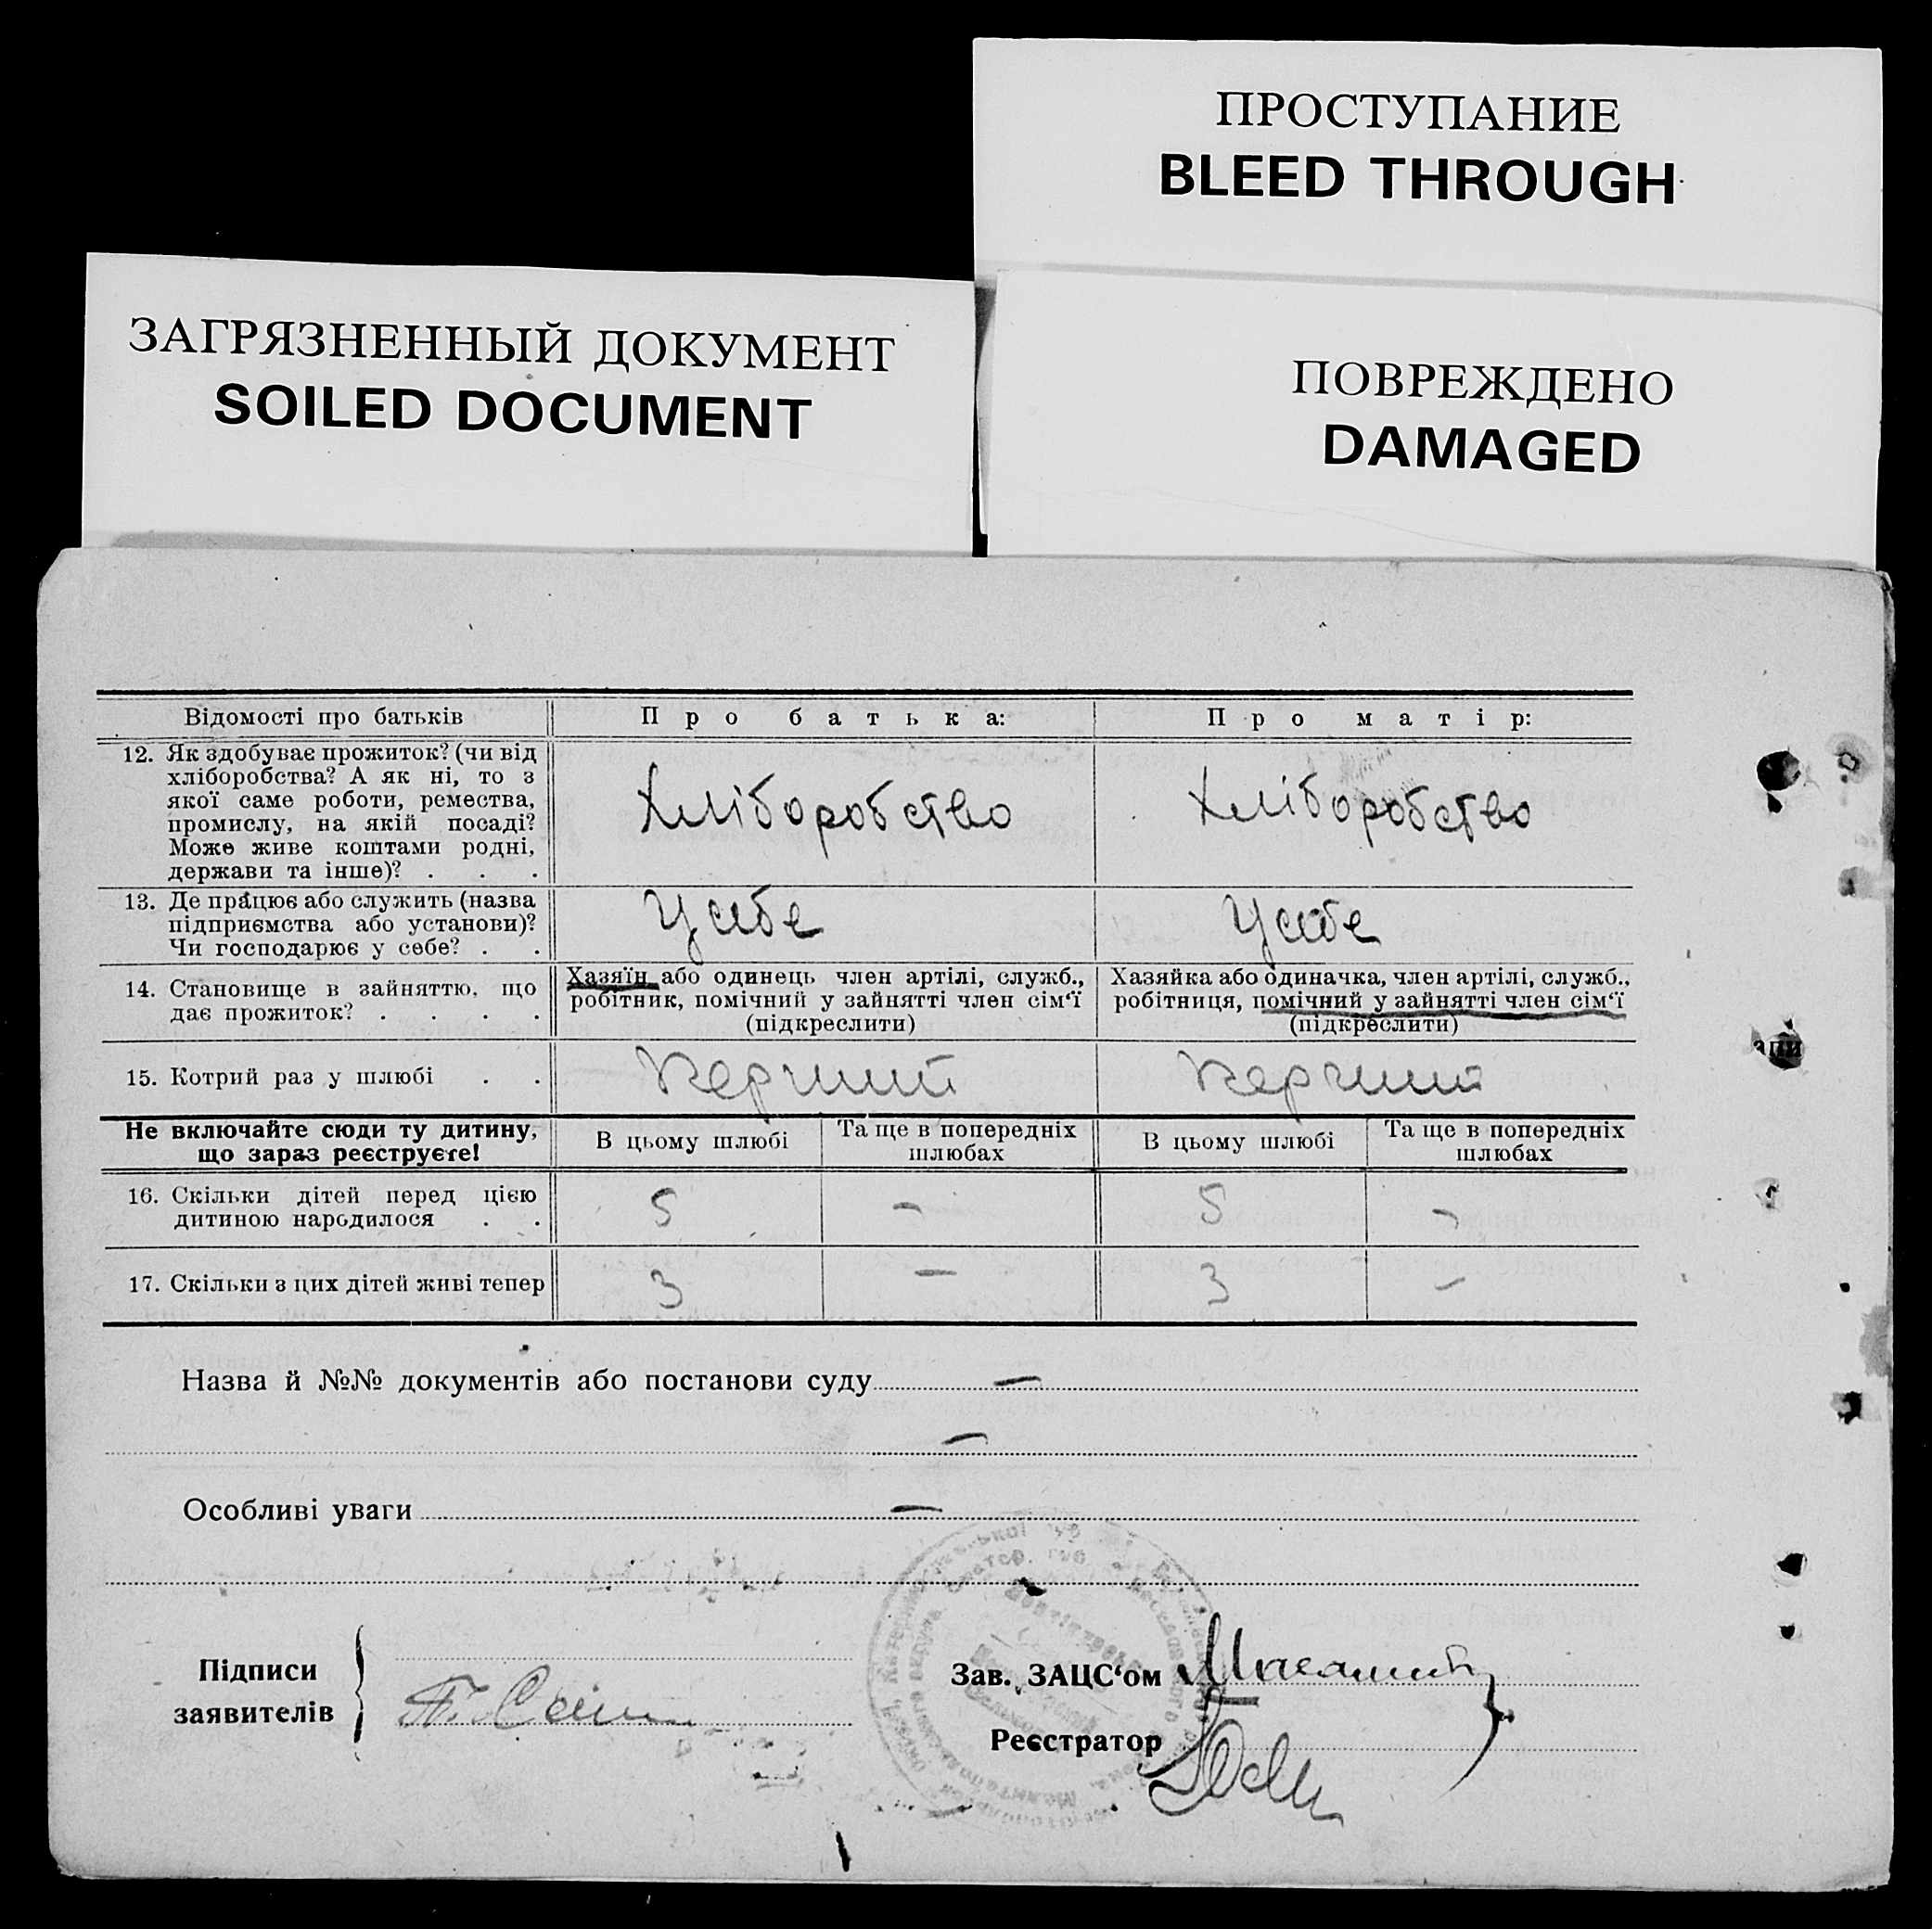 ПРОСТУПАНИЕ
BLEED THROUGH
ЗАГРЯЗНЕННЫЙ ДОКУМЕНТ
SOILED DOCUMENT
ПОВРЕЖДЕНО
DAMAGED
Відомості про батьків
Про батька:
Про матір:
12. Як здобуває прожиток? (чи від
хліборобства? А як ні, то з
якої саме роботи, ремества,
промислу, на якій посаді?
Може живе коштами родні,
держави та інше)? . . .
Хліборобство
Хліборобство
13. Де працює або служить (назва
підприємства або установи)?
Чи господарює у себе? . .
У себе
У себе
14. Становище в зайняттю, що
дає прожиток? . . . .
Хазяїн або одинець член артілі, служб.,
робітник, помічний у зайнятті член сім‘ї
(підкреслити)
Хазяйка або одиначка, член артілі, служб.,
робітниця, помічний у зайнятті член сім‘ї
(підкреслити)
15. Котрий раз у шлюбі . .
Перший
Перший
Не включайте сюди ту дитину,
що зараз реєструєте!
В цьому шлюбі
Та ще в попередніх
шлюбах
В цьому шлюбі
Та ще в попередніх
шлюбах
16. Скільки дітей перед цією
дитиною народилося . .
5
–
5
–
17. Скільки з цих дітей живі тепер
3
–
3
–
Назва й №№ документів або постанови суду —
—
Особливі уваги —
Підписи
заявителів
Зав. ЗАЦС‘ом
Реєстратор